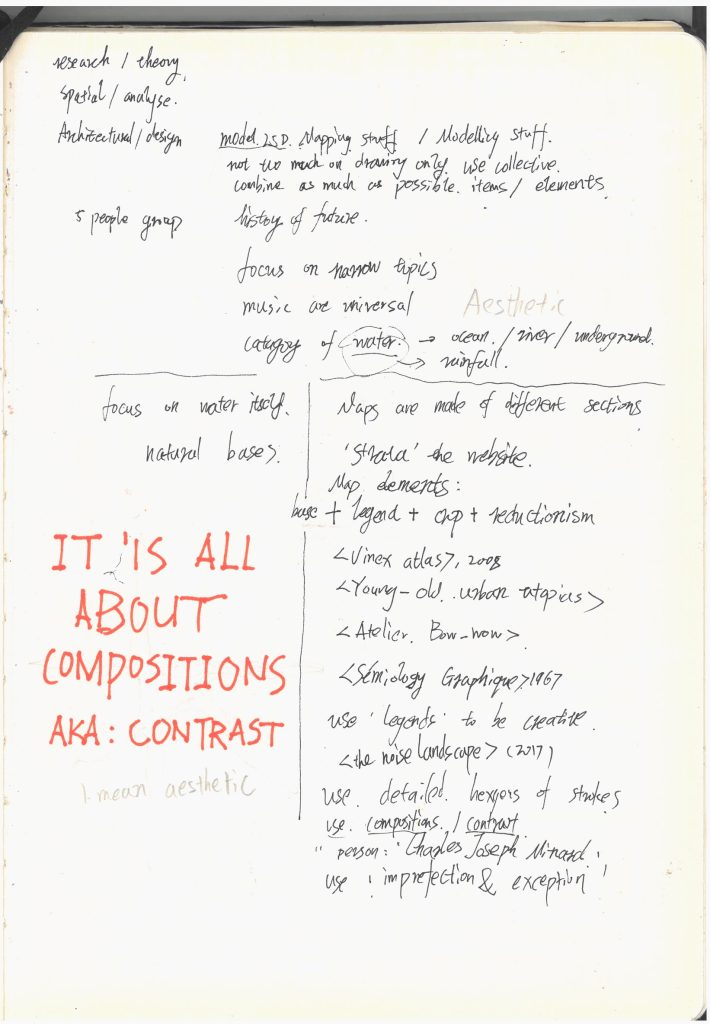 research / theory.
spatial / analyse.
Architectural / design
model. 2.5D. Mapping stuff / Modelling stuff.
not too much on drawing only. use collective.
combine as much as possible. items / elements.
5 people group
history of future.
focus on narrow topics
music are universal
Aesthetic
category of water. → ocean. / river / underground.
→ rainfall.
focus on water itself.
natural bases.
Maps are made of different sections
'strata' the website.
Map elements:
base + legend + crop + reductionism
<Vinex atlas>, 2008
<Young-old. urban utopias>
<Atelier. Bow-wow>
<Semiology Graphique>, 1967
use 'legends' to be creative.
<the noise landscape> (2017)
use detailed of strokes
use. compositions. / contrast
" person: 'Charles Joseph Minard'.
use 'imprefection & exception'
IT 'IS ALL
ABOUT
COMPOSITIONS
AKA: CONTRAST
I mean aesthetic